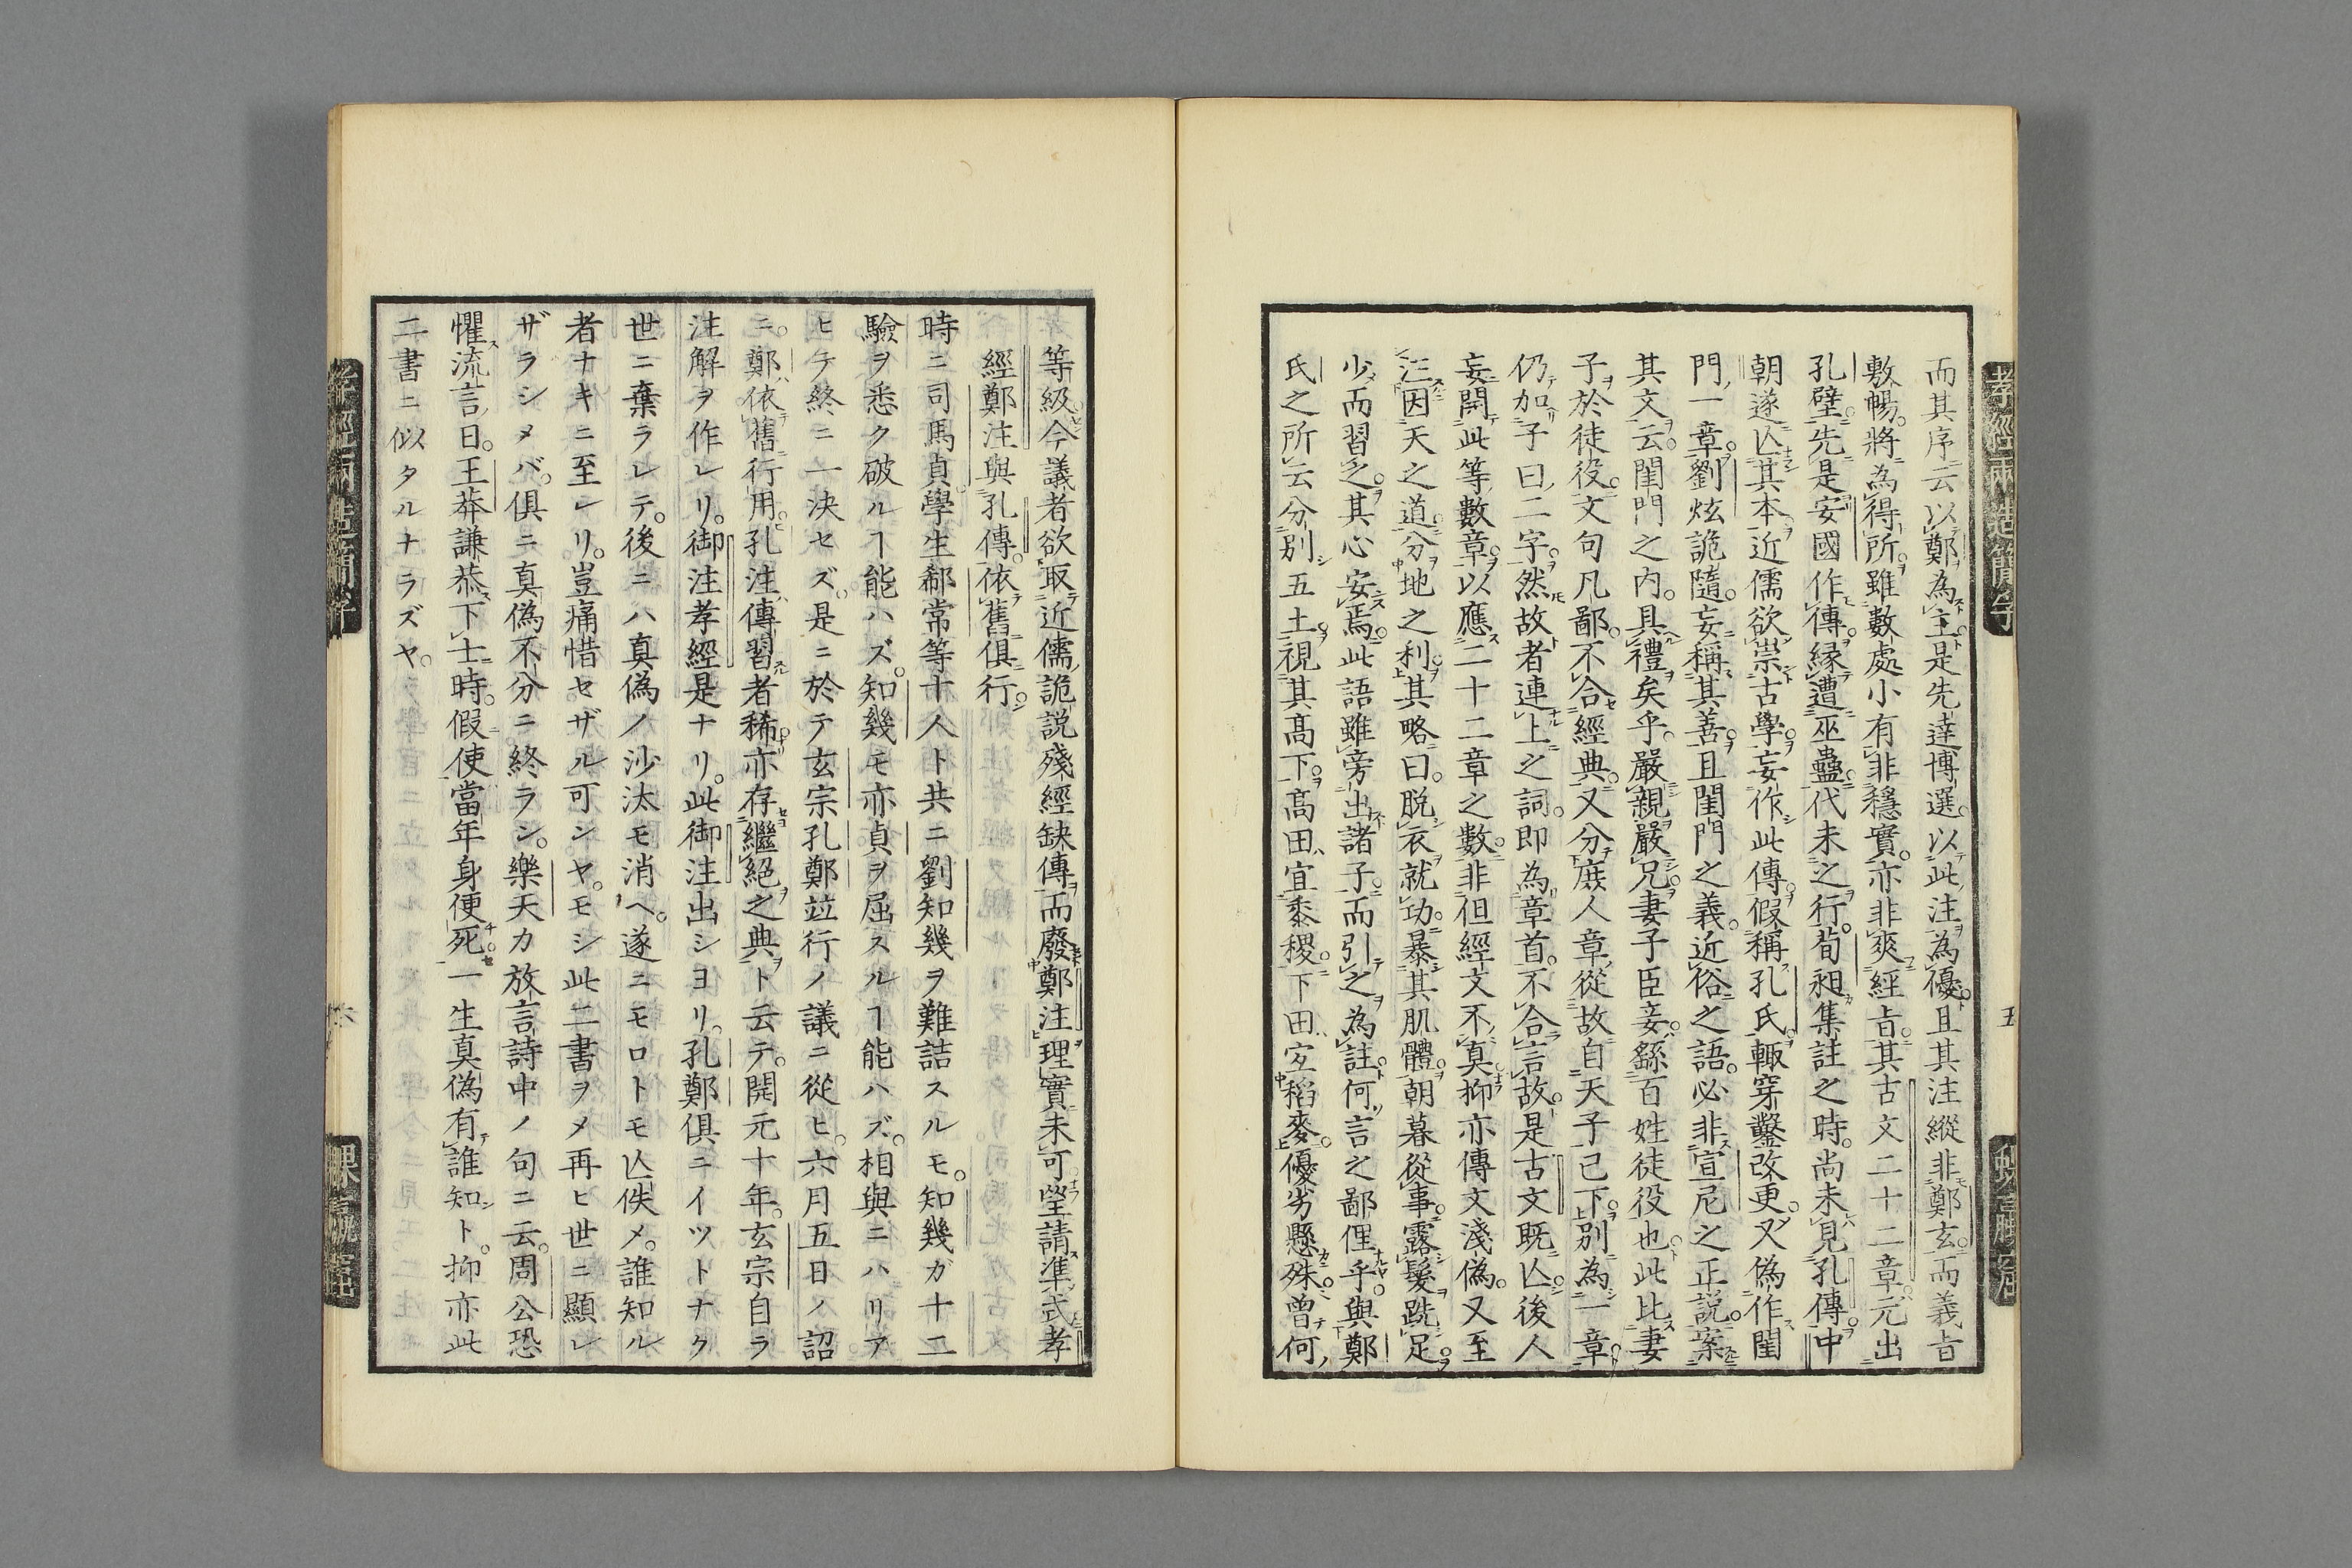 而其序云以鄭為主是先達博選以此注為優且其注縱非鄭玄而義旨
敷暢將為得所雖數處小有非穩實亦非爽經旨其古文二十二章元出
孔壁先是安國作傳緣遭巫蠱代未之行荀昶集註之時尚未見孔傳中
朝遂亾其本近儒欲崇古學妄作此傳假稱孔氏輙穿鑿改更又偽作閨
門一章劉炫詭隨妄稱其善且閨門之義近俗之語必非宣尼之正説案
其文云閨門之内具禮矣乎嚴親嚴兄妻子臣妾繇百姓徒役也此比妻
子於徒役文句凡鄙不合經典又分庶人章從故自天子已下別為一章
仍加子曰二字然故者連上之詞即為章首不合言故是古文既亾後人
妄開此等數章以應二十二章之數非但經文不真抑亦傳文淺偽又至
注因天之道分地之利其略曰脱衣就功暴其肌體朝暮從事露髮跣足
少而習之其心安焉此語雖旁出諸子而引之為註何言之鄙俚乎與鄭
氏之所云分別五土視其高下高田宜黍稷下田宜稻麥優劣懸殊曽何
等級今議者欲取近儒詭説殘經缺傳而廢鄭注理實未可望請準式孝
經鄭注與孔傳依舊俱行
時ニ司馬貞學生郗常等十人ト共ニ劉知幾ヲ難詰スルモ知幾ガ十二
驗ヲ悉ク破ルヿ能ハズ知幾モ亦貞ヲ屈スルヿ能ハズ相與ニハリア
ヒテ終ニ一決セズ是ニ於テ玄宗孔鄭竝行ノ議ニ從ヒ六月五日ノ詔
ニ鄭依舊行用孔注傳習者稀亦存繼絕之典ト云テ開元十年玄宗自ラ
注解ヲ作レリ御注孝經是ナリ此御注出シヨリ孔鄭俱ニイツトナク
世ニ棄ラレテ後ニハ真偽ノ沙汰モ消ヘ遂ニモロトモ亾佚メ誰知ル
者ナキニ至レリ豈痛惜セザル可シヤモシ此二書ヲメ再ヒ世ニ顯レ
ザラシメバ俱ニ真偽不分ニ終ラシ樂天カ放言詩中ノ句ニ云周公恐
懼流言日王莽謙恭下士時假使當年身便死一生真偽有誰知ト抑亦此
二書ニ似タルナラズヤ
五
六